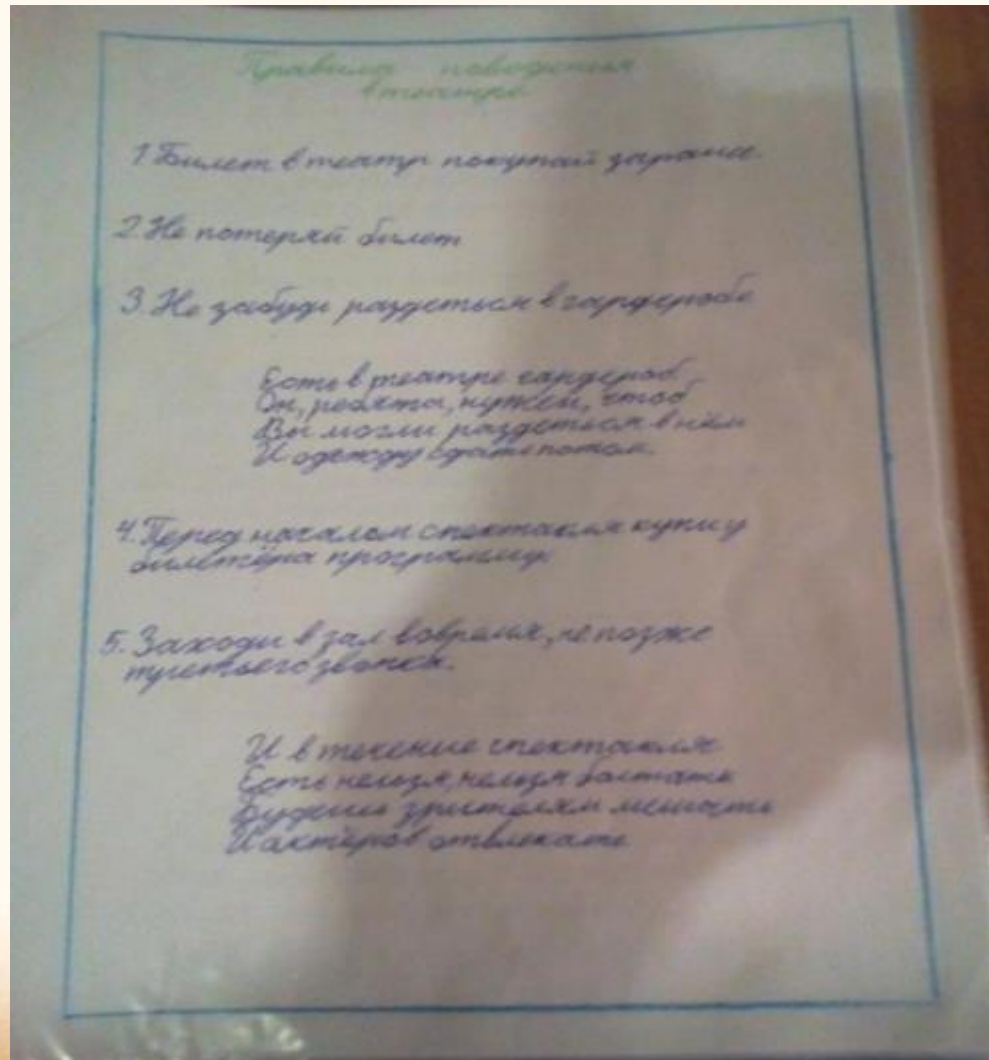 Правила поведения
в театре
1 Билет в театр покупай заранее.
2. Не потеряй билет
3. Не забудь раздеться в гардеробе
Есть в театре гардероб.
Он, ребята, нужен, чтоб
Вы могли раздеться в нём
И одежду сдать потом.
4. Перед началом спектакля купи у
билетёра программу.
5. Заходи в зал вовремя, не позже
третьего звонка.
И в течение спектакля
Есть нельзя, нельзя болтать
Будешь зрителям мешать
И актёров отвлекать